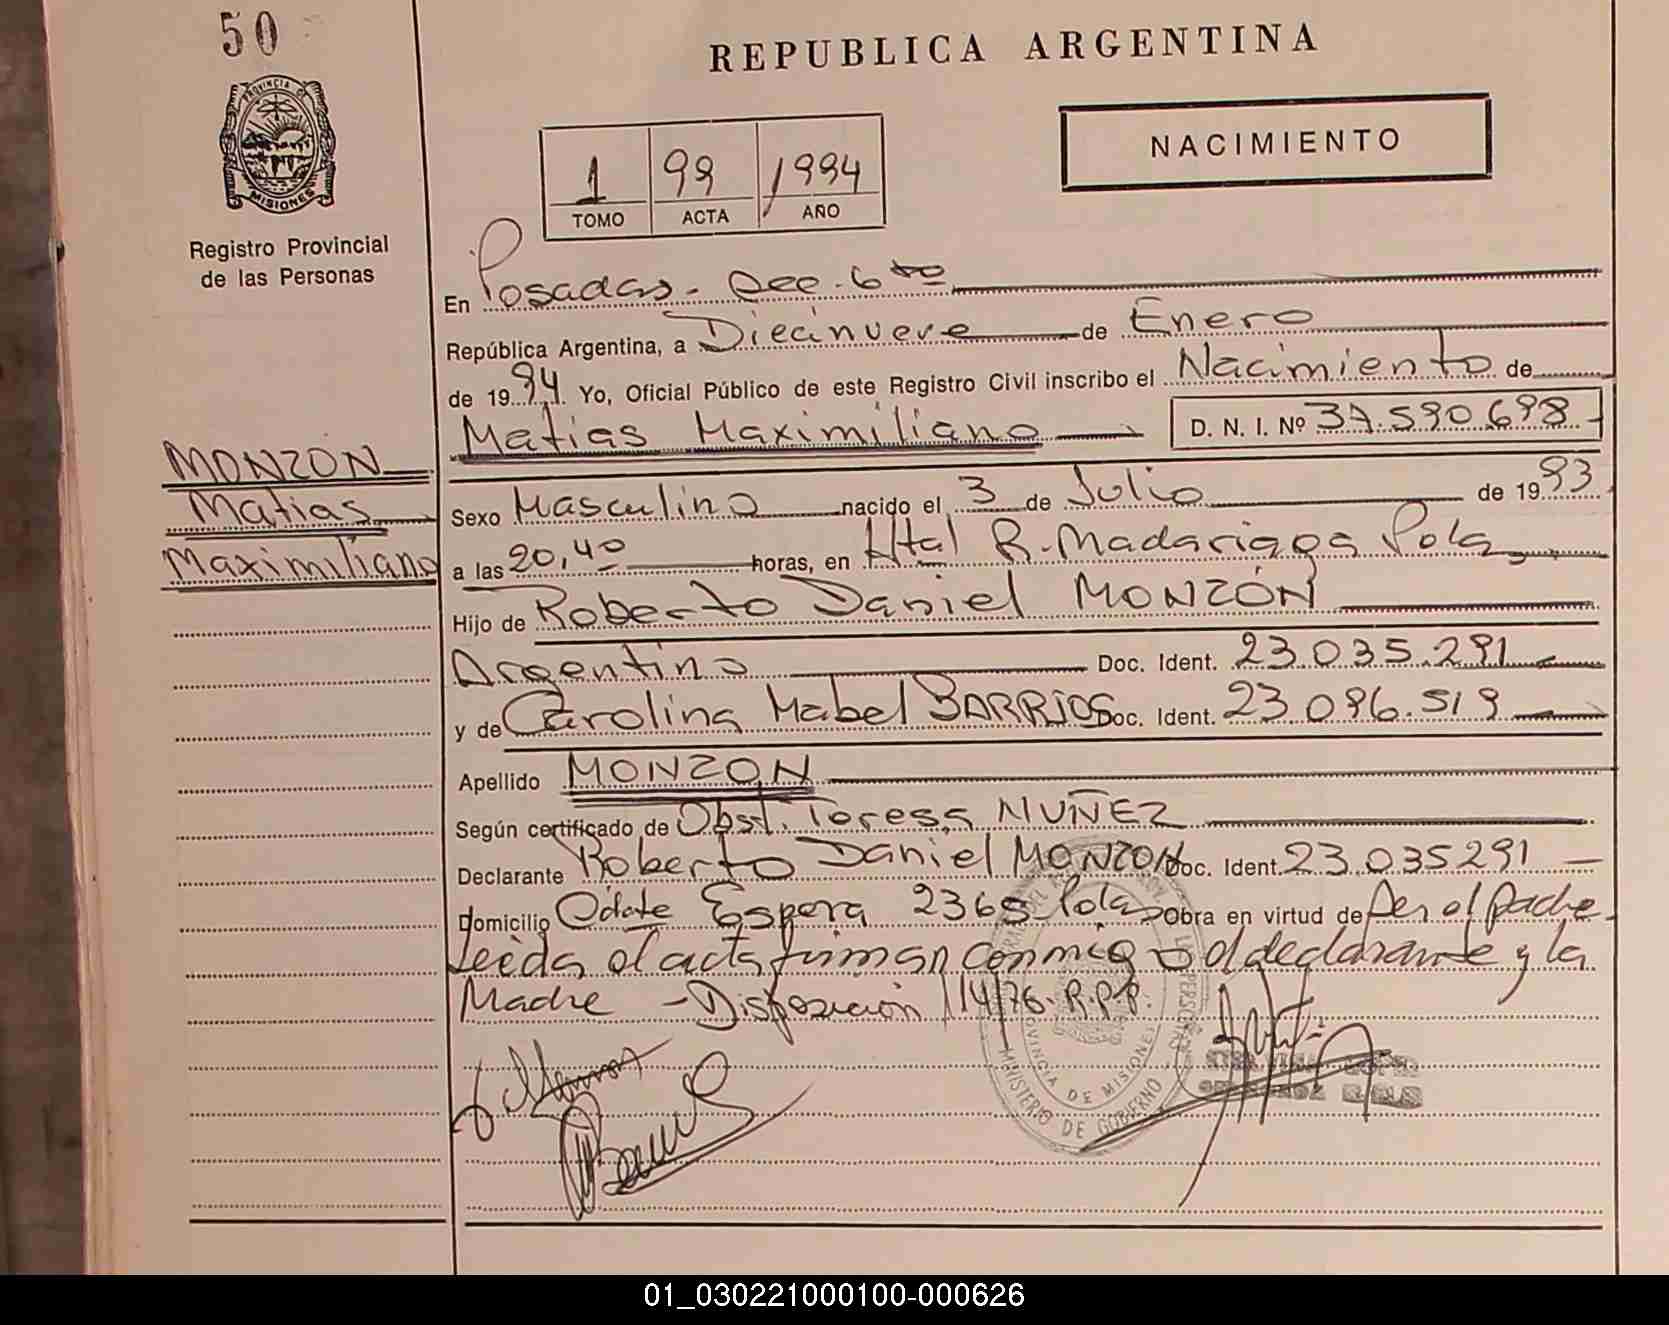 50
REPUBLICA ARGENTINA
PROVINCIA DE
MISIONES
Registro Provincial
de las Personas
1 99 1994
TOMO ACTA AÑO
NACIMIENTO
En Posadas - Sec. 6 to
República Argentina, a Diecinueve de Enero
de 1994. Yo, Oficial Público de este Registro Civil inscribo el Nacimiento de
Matias Maximiliano D. N. I. Nº 37.590.698
MONZON
Matias
Maximiliano
Sexo Masculino nacido el 3 de Julio de 1993
a las 20,40 horas, en Htal R. Madariaga Pdas
Hijo de Roberto Daniel MONZÓN
Argentino Doc. Ident. 23.035.291
y de Carolina Mabel BARRIOS Doc. Ident. 23.096.519
Apellido MONZON
Según certificado de Obst. Teresa NUÑEZ
Declarante Roberto Daniel MONZON Doc. Ident. 23.035291
Domicilio Cdate Espora 2365 Pdas Obra en virtud de ser el padre
Leída el acta firman conmigo el declarante y la
Madre - Disposición 114/76. R.P.P.
PROVINCIA DE MISIONES
MINISTERIO DE GOBIERNO
01_030221000100-000626